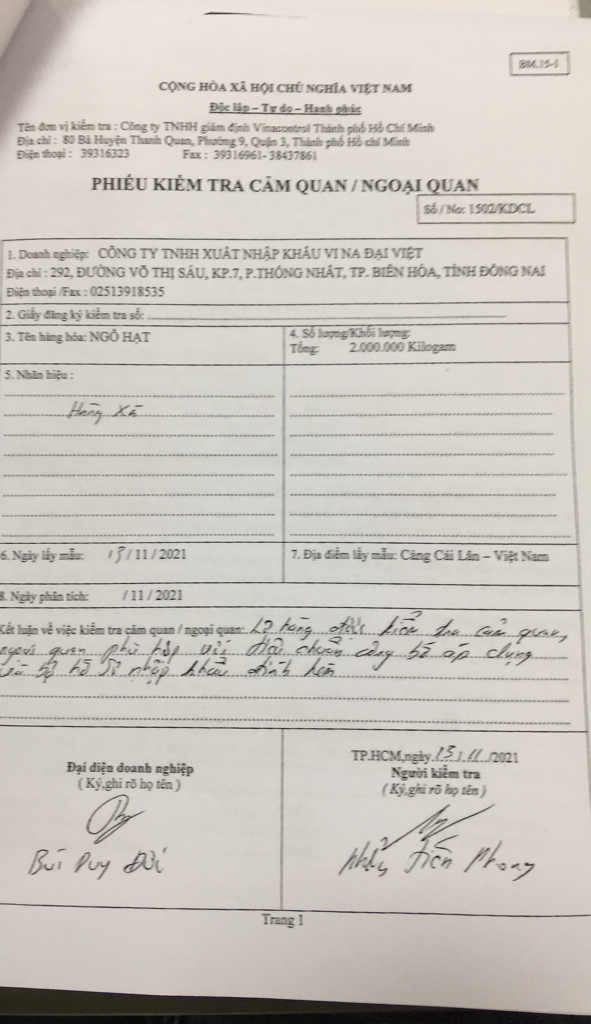 BM.15-1
CỘNG HÒA XÃ HỘI CHỦ NGHĨA VIỆT NAM
Độc lập – Tự do – Hạnh phúc
Tên đơn vị kiểm tra : Công ty TNHH giám định Vinacontrol Thành phố Hồ Chí Minh
Địa chỉ : 80 Bà Huyện Thanh Quan, Phường 9, Quận 3, Thành phố Hồ chí Minh
Điện thoại : 39316323 Fax : 39316961- 38437861
PHIẾU KIỂM TRA CẢM QUAN / NGOẠI QUAN
Số / No: 1502/KDCL
1. Doanh nghiệp: CÔNG TY TNHH XUẤT NHẬP KHẨU VI NA ĐẠI VIỆT
Địa chỉ : 292, ĐƯỜNG VÕ THỊ SÁU, KP.7, P.THỐNG NHẤT, TP. BIÊN HÒA, TỈNH ĐỒNG NAI
Điện thoại /Fax : 02513918535
2. Giấy đăng ký kiểm tra số:
3. Tên hàng hóa: NGÔ HẠT
4. Số lượng/Khối lượng:
Tổng: 2.000.000 Kilogam
5. Nhãn hiệu :
Hàng xá
6. Ngày lấy mẫu: 13 / 11 / 2021
7. Địa điểm lấy mẫu: Cảng Cái Lân – Việt Nam
8. Ngày phân tích: / 11 / 2021
Kết luận về việc kiểm tra cảm quan / ngoại quan: Lô hàng được kiểm tra cảm quan,
ngoại quan phù hợp với tiêu chuẩn công bố áp dụng
và bộ hồ sơ nhập khẩu đính kèm
Đại diện doanh nghiệp
( Ký,ghi rõ họ tên )
Bùi Duy Đức
TP.HCM,ngày 13 / 11 /2021
Người kiểm tra
( Ký,ghi rõ họ tên )
Tiến Phong
Trang 1